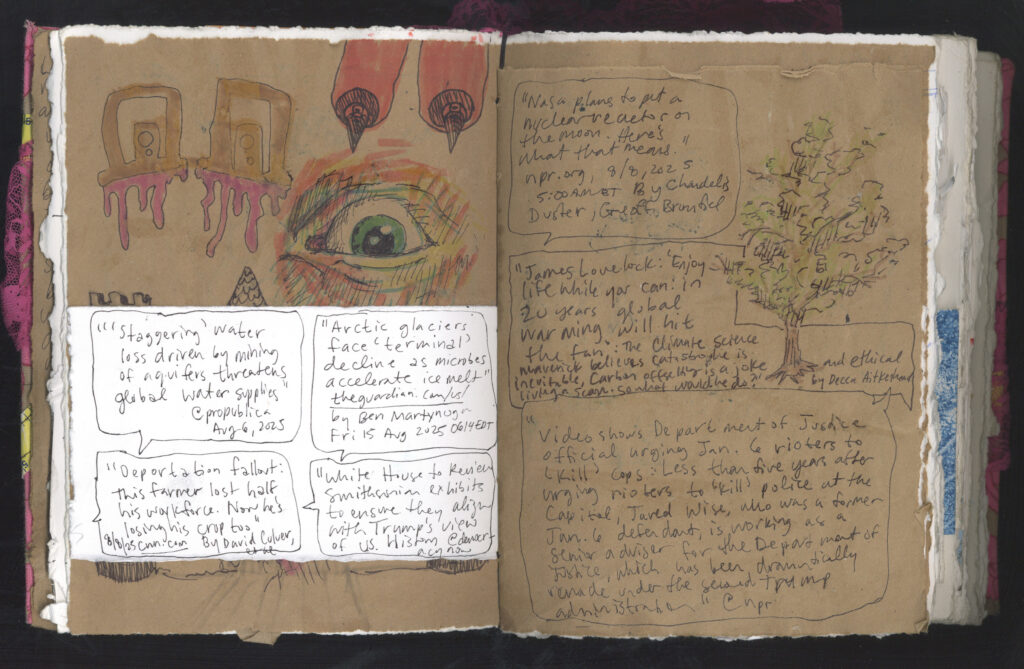 "'Staggering' water
loss driven by mining
of aquifers threatens
global water supplies"
@propublica
Aug 6, 2025
"Arctic glaciers
face 'terminal'
decline as microbes
accelerate ice melt"
theguardian.com/us/
by Ben Martynoga
Fri 15 Aug 2025 06:14 EDT
"Deportation fallout:
this farmer lost half
his workforce. Now he's
losing his crop too"
8/8/25 cnn.com By David Culver,
et al
"White House to Review
Smithsonian exhibits
to ensure they align
with Trump's view
of US. History @democr
acy now
"Nasa plans to put a
nuclear reactor on
the moon. Here's
what that means."
npr.org, 8/8, 2025
5:00 AM ET By Chandelis
Duster, Geoff Brumfiel
"James Lovelock: 'Enjoy
life while you can: in
20 years global
warming will hit
the fan'. The Climate Science
maverick believes catastrophe is
inevitable, Carbon offsetting is a joke
and ethical
living a scam. So what would he do?"
by Decca Aitkenhead
"
Video shows Department of Justice
official urging Jan. 6 rioters to
'kill' cops: Less than five years after
urging rioters to 'kill' police at the
Capital, Jared Wise, who was a former
Jan. 6 defendant, is working as a
senior adviser for the Department of
Justice, which has been dramatically
remade under the second Trump
administration" @npr